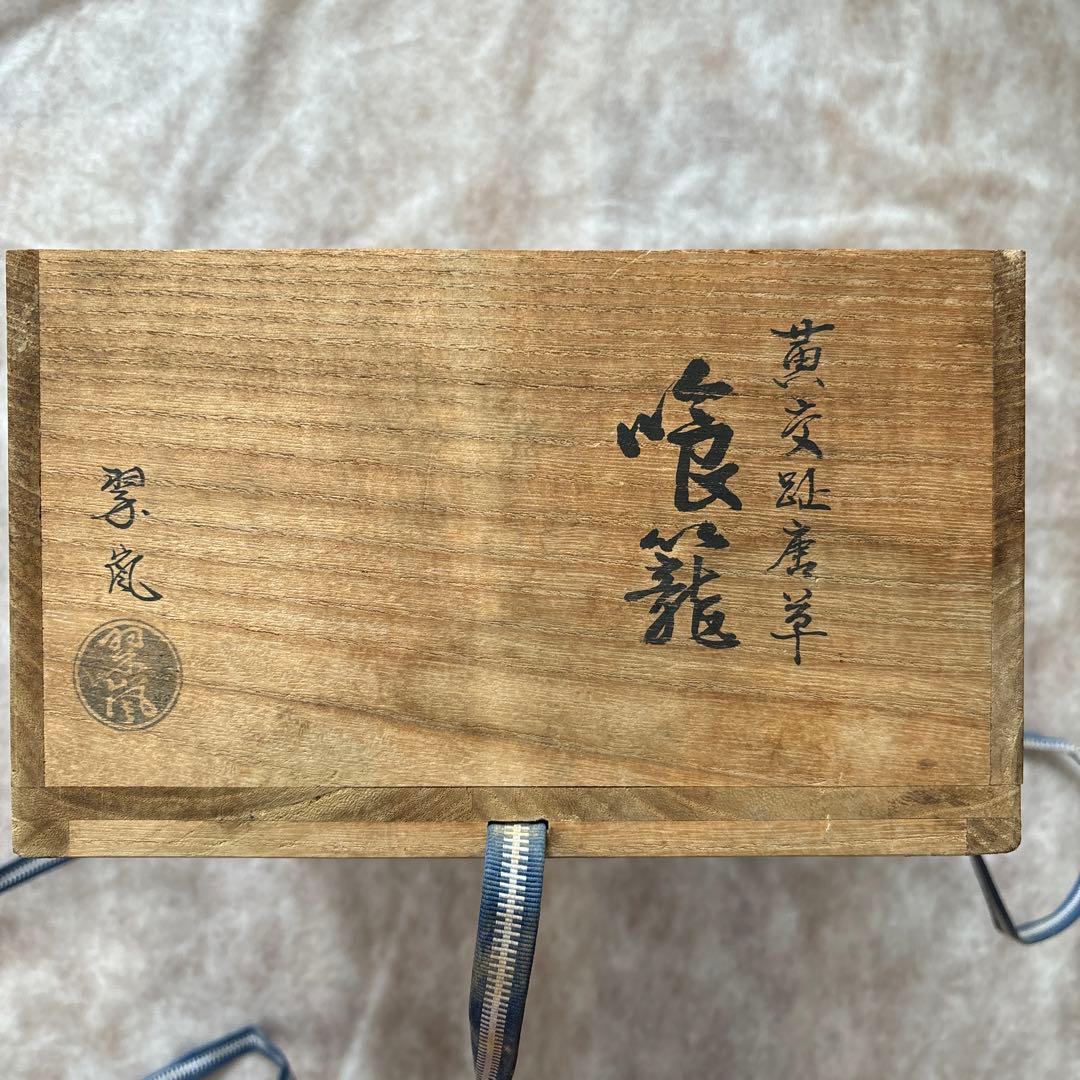 黄交趾唐草
喰籠
翠嵐
翠嵐